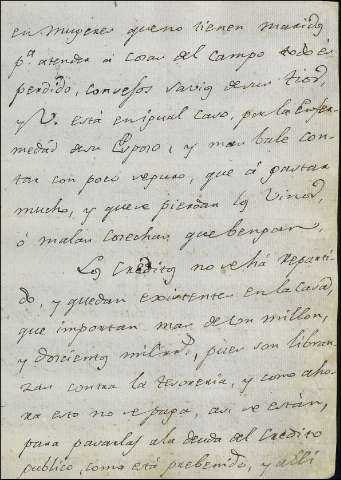 en mugeres que no tienen maridos
pª. atender à cosas del campo todo és
perdido, consejos savios de sus tios,
y V. está en igual caso, por la Enfer-
medad de su Esposo, y mas bale con-
tar con poco seguro, que á gastar
mucho, y que se pierdan los vinos,
ó malas cosechas que bengan.
Los creditos no se há reparti-
do, y quedan existentes en la Casa,
que importan mas de un millon,
y doscientos mil rrs., pues son libran-
zas contra la tesoreria, y como aho-
ra esto no se paga, asi se están,
para pasarlas a la deuda del credito
publico, como está prebenido, y alli